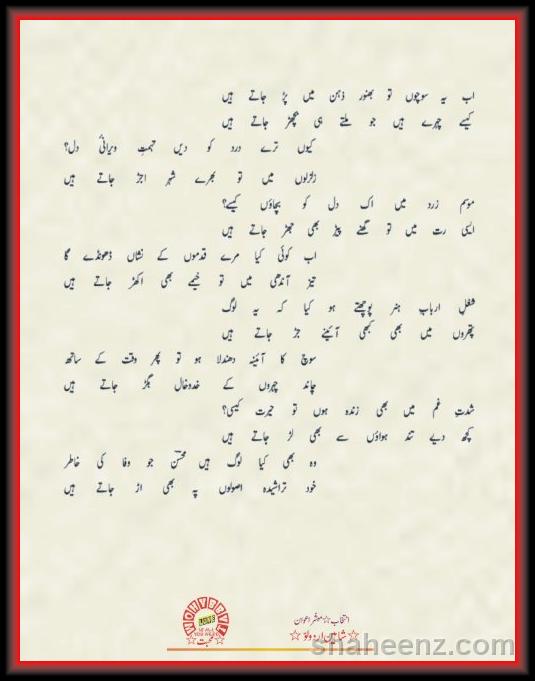 اب یہ سوچوں تو بھنور ذہن میں پڑ جاتے ہیں
کیسے چہرے ہیں جو ملتے ہی بچھڑ جاتے ہیں
کیوں ترے درد کو دیں تہمتِ ویرانیٔ دل؟
زلزلوں میں تو بھرے شہر اجڑ جاتے ہیں
موسم زرد میں اک دل کو بچاؤں کیسے؟
ایسی رت میں تو گھنے پیڑ بھی جھڑ جاتے ہیں
اب کوئی کیا مرے قدموں کے نشاں ڈھونڈے گا
تیز آندھی میں تو خیمے بھی اکھڑ جاتے ہیں
شغلِ ارباب ہنر پوچھتے ہو کیا کہ یہ لوگ
پتھروں میں بھی کبھی آئینے جڑ جاتے ہیں
سوچ کا آئینہ دھندلا ہو تو پھر وقت کے ساتھ
چاند چہروں کے خدوخال بگڑ جاتے ہیں
شدتِ غم میں بھی زندہ ہوں تو حیرت کیسی؟
کچھ دیے تند ہواؤں سے بھی لڑ جاتے ہیں
وہ بھی کیا لوگ ہیں محسنؔ جو وفا کی خاطر
خود تراشیدہ اصولوں پہ بھی اڑ جاتے ہیں
انتخاب☆مبشر اعوان
☆شاہین اردو لو☆
LOVE
☆محبت☆
shaheenz.com